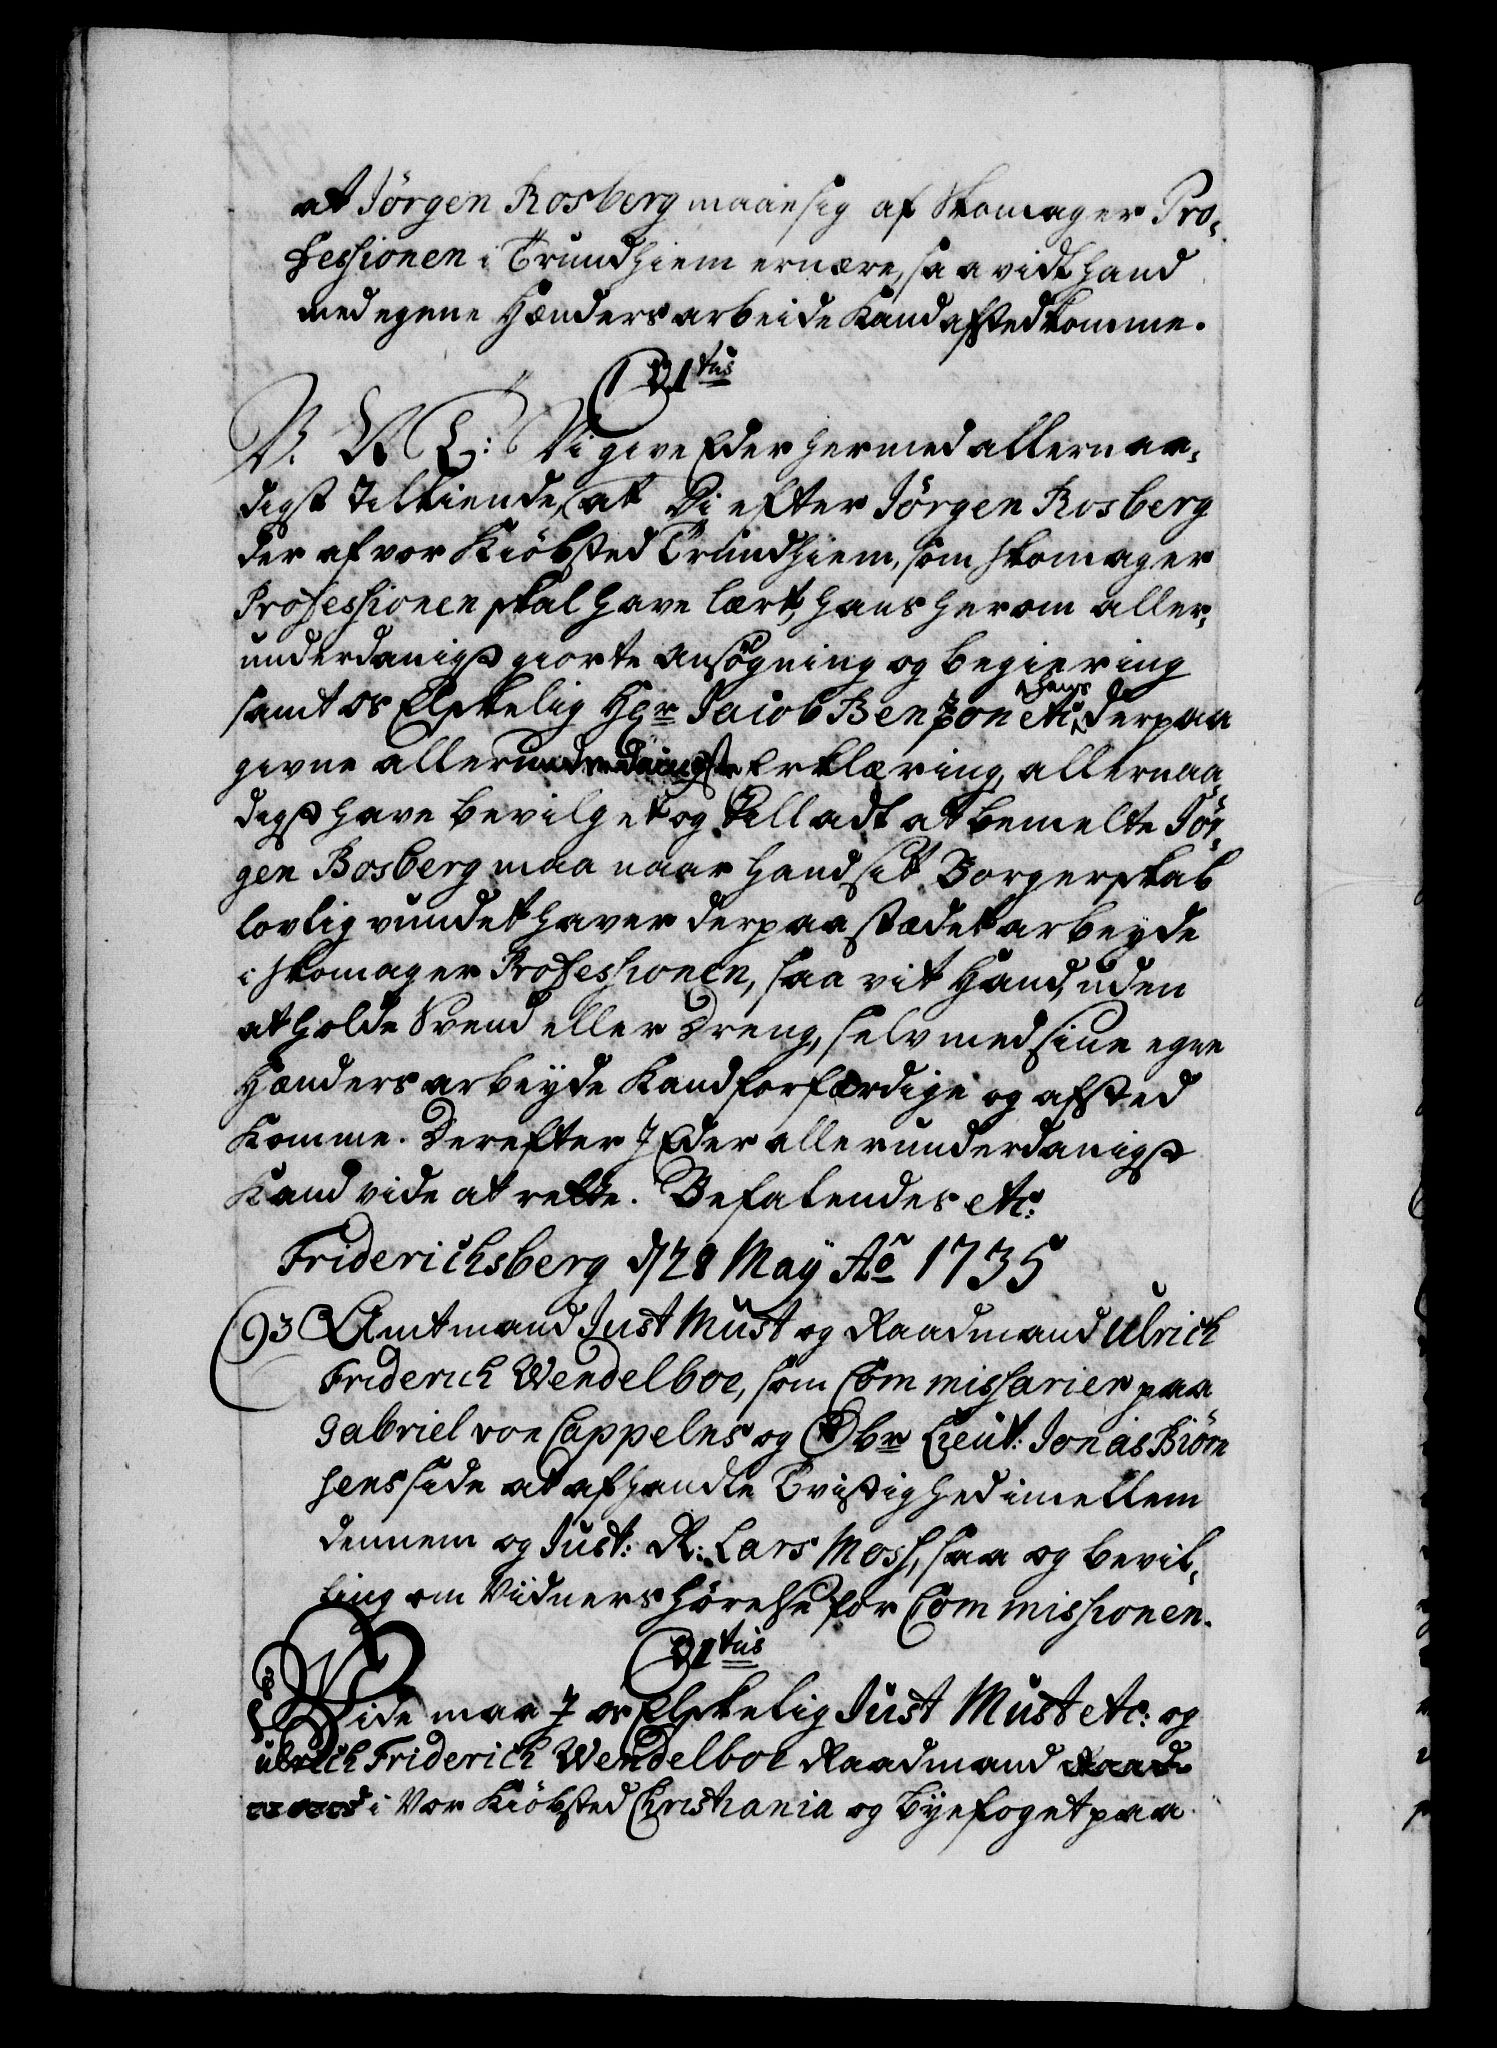 at Jörgen Rosberg maae sig af Skomager Pro-
fessionen i Trundhiem ernære, saavidt hand
med egene Hænders arbeide Kand afstedkomme.
D: Vi give Eder hermed allernaa-
digst tilkiende, at Vi efter Jörgen Rosberg
der af vor Kiöbsted Trundhiem, som skomager
Professionen skal have lært, hans herom aller-
underdanigst giorte ansögning og begiering
samt os Elskelig Hr Jacob Benzon etc: hans derpaa
givne allerunderdanigste Erklæring, allernaa-
digst have bevilget og tilladt at bemelte Jör-
gen Bosberg maa naar hand sit Borgerskab
lovlig vundet haver derpaa stædet arbeyde
i skomager Professionen, saa vit Hand, uden
at holde Svend eller Dreng, selv med sine egne
Hænders arbeyde Kand forfærdige og afsted
Komme. Derefter I Eder allerunderdanigst
Kand vide at rette. Befalendes etc:
Friderichsberg d/ 28 May Ao 1735
93 Amtmand Just Must og Raadmand Ulrich
Friderich Wendelboe, som Commissarier paa
Gabriel von Cappelns og Obr Lieut: Jonas Biörn
sens side at afhandle Tvistighed imellem
dennem og Just: R: Lars Moss, saa og bevil-
ling om Vidners hörelse for Commissionen.
Vide maa I os Elskelig Just Must etc: og
Ulrich Friderich Wendelboe Raadmand Raad-
mand i Vor Kiöbsted Christiania og Byefoget paa